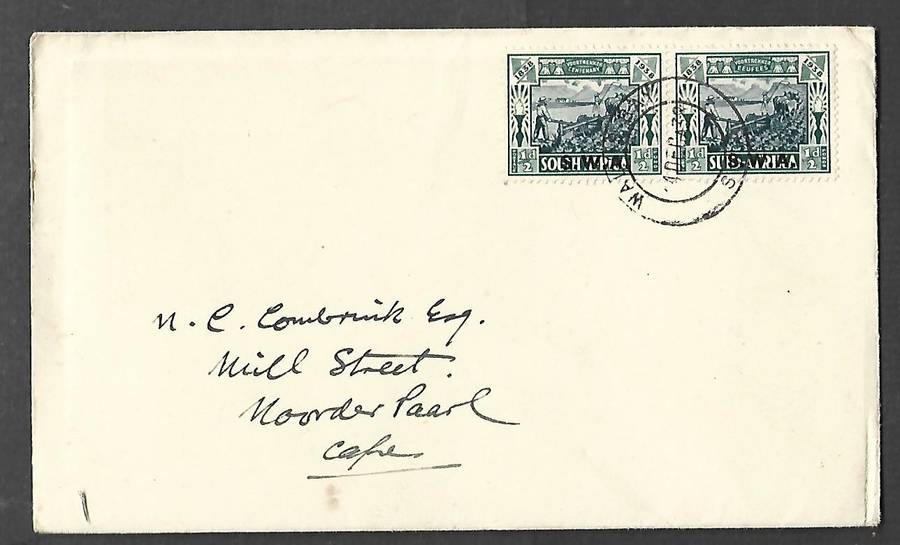 1838 VOORTREKKER CENTENARY 1938
½d SOUTH AFRICA ½d
S.W.A.
1838 VOORTREKKER EEUFEES 1938
½d ½d
S.W.A.
DEC
N. C. Combrink Esq.
Mill Street.
Noorder Paarl
Cape